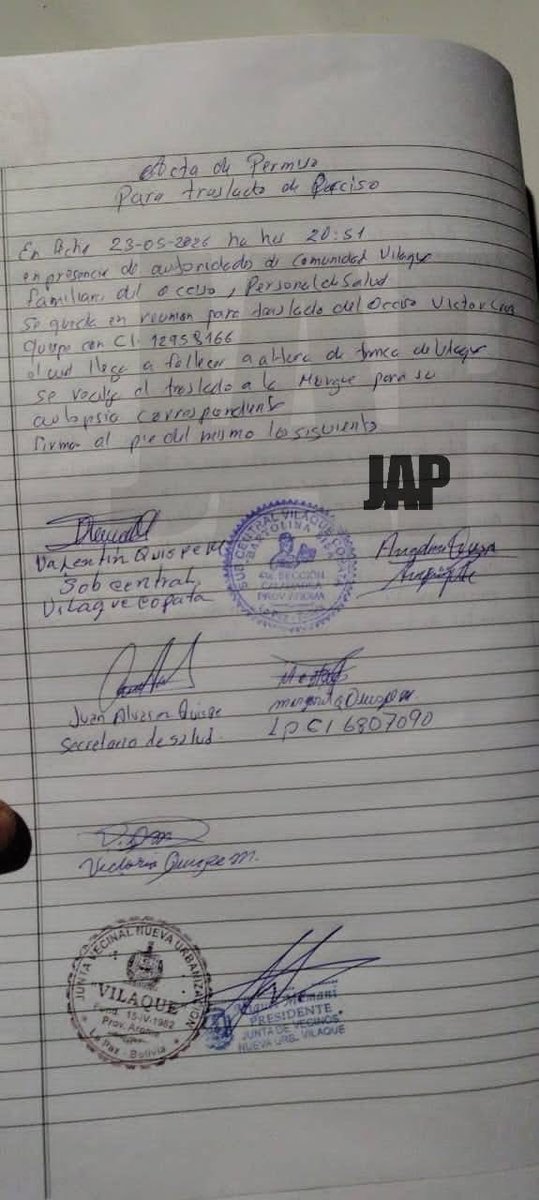 Acta de Permiso
Para traslado de Occiso
En fecha 23-05-2026 ha hrs 20:51
en presencia de autoridades de comunidad Vilaque
familiares del occiso, Personal de Salud
Se queda en reunion para traslado del Occiso Victor Cruz
Quispe con CI. 12958166
el cual llega a fallecer a altura de tranca de Vilaque
se realiza el traslado a la Morgue para su
autopsia correspondiente
firman al pie del mismo los siguiento
JAP
Valentin Quispe
Sob central
Vilaque copata
SUB CENTRAL VILAQUE COPATA
BARTOLINA SISA
SECCIÓN
PROV. AROMA
Juan Alvaro Quispe
Secretario de salud
Margarita Quispe M.
LP CI 6807090
Victoria Quispe M.
JUNTA VECINAL NUEVA URBANIZACION
"VILAQUE"
Fund. 15-IV-1982
Prov. Aroma
La Paz - Bolivia
Mamani
PRESIDENTE
JUNTA DE VECINOS
NUEVA URB. VILAQUE